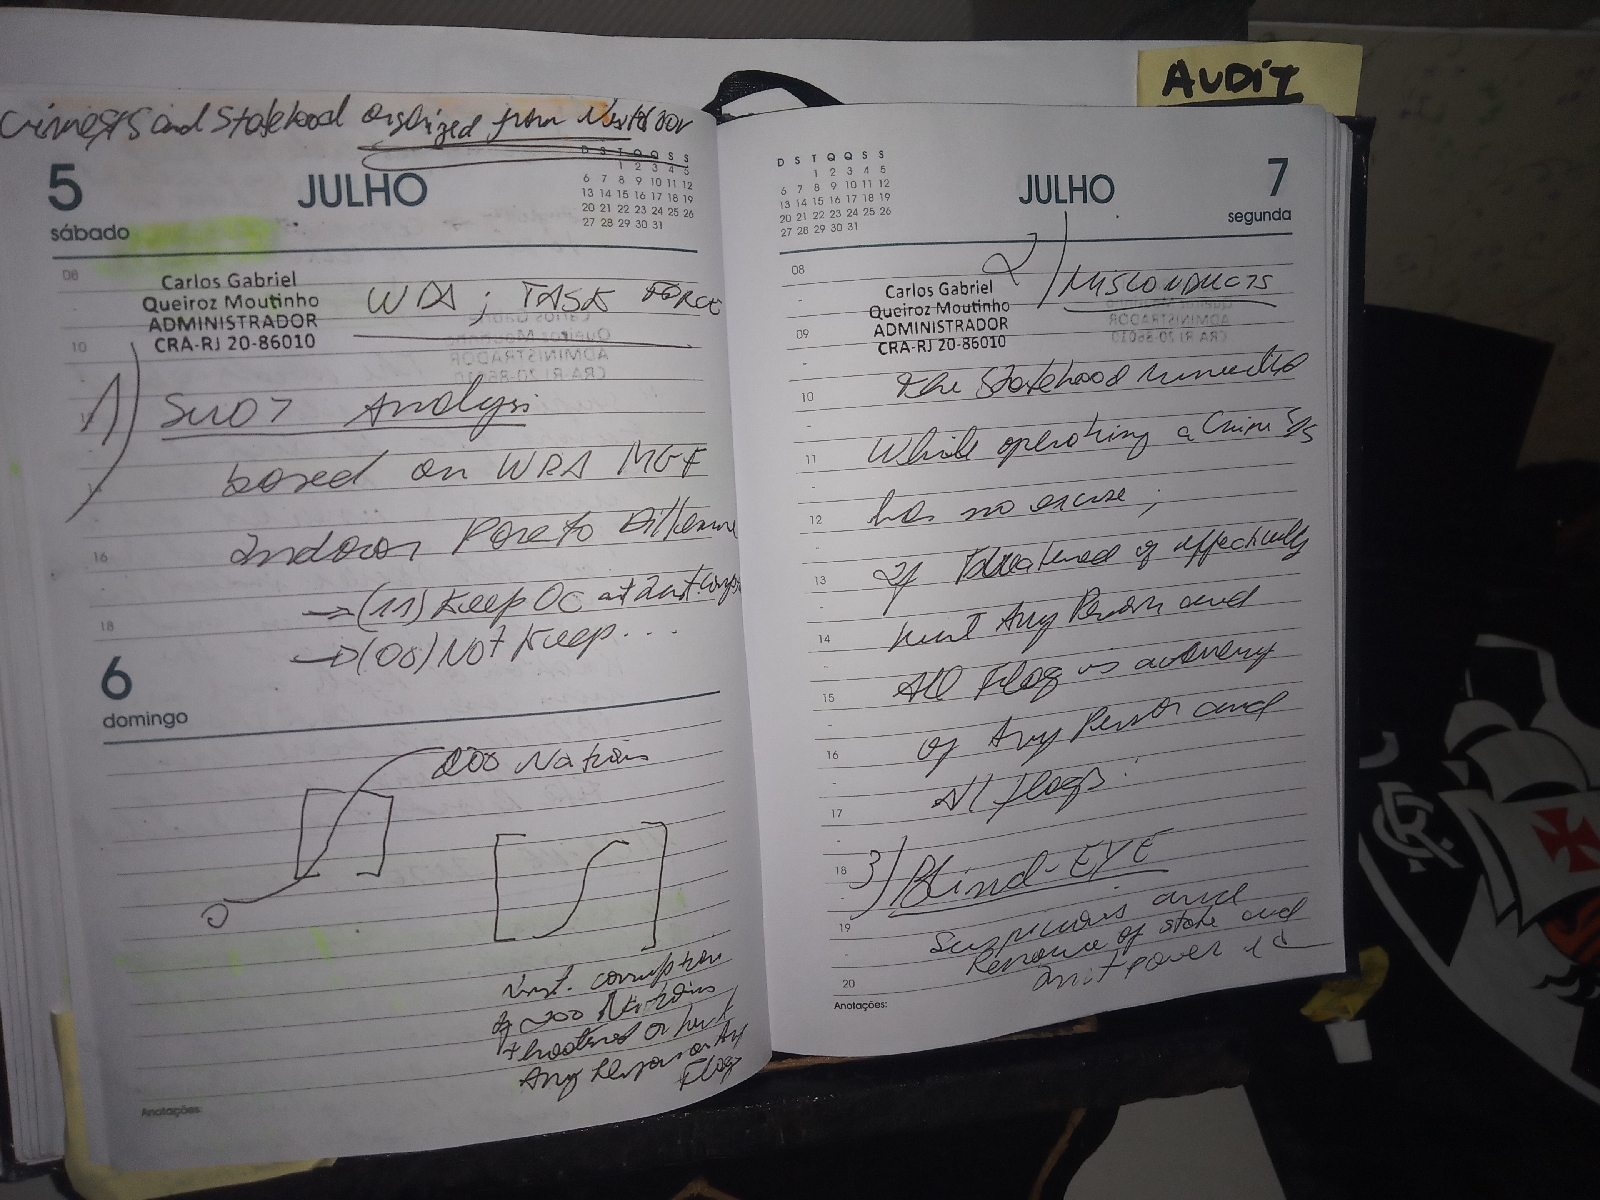 AUDIT
and Statehood organized from
5 JULHO
sábado
D S T Q Q S S
1 2 3 4 5
6 7 8 9 10 11 12
13 14 15 16 17 18 19
20 21 22 23 24 25 26
27 28 29 30 31
08
Carlos Gabriel
Queiroz Moutinho
ADMINISTRADOR
CRA-RJ 20-86010
; TASK FORCE
10
1) SWOT Analysis
based on
Pareto
16
→(11) Keep OC at
18
→(00) Not Keep...
6
domingo
200 Nations
Inst. corruption
of 200 Nations
threatened or hurt
Any Person or Any
Flag
Anotações:
D S T Q Q S S
1 2 3 4 5
6 7 8 9 10 11 12
13 14 15 16 17 18 19
20 21 22 23 24 25 26
27 28 29 30 31
JULHO 7
segunda
08
Carlos Gabriel
Queiroz Moutinho
ADMINISTRADOR
CRA-RJ 20-86010
2) MISCONDUCTS
09
10 the Statehood
11 While operating a
12 has no excuse;
13 If threatened or effectively
14 hurt Any Person and
15 All Flag is
16 of Any Person and
17 All flags.
18 3) Blind-EYE
19 and
of state and
20 power
Anotações: